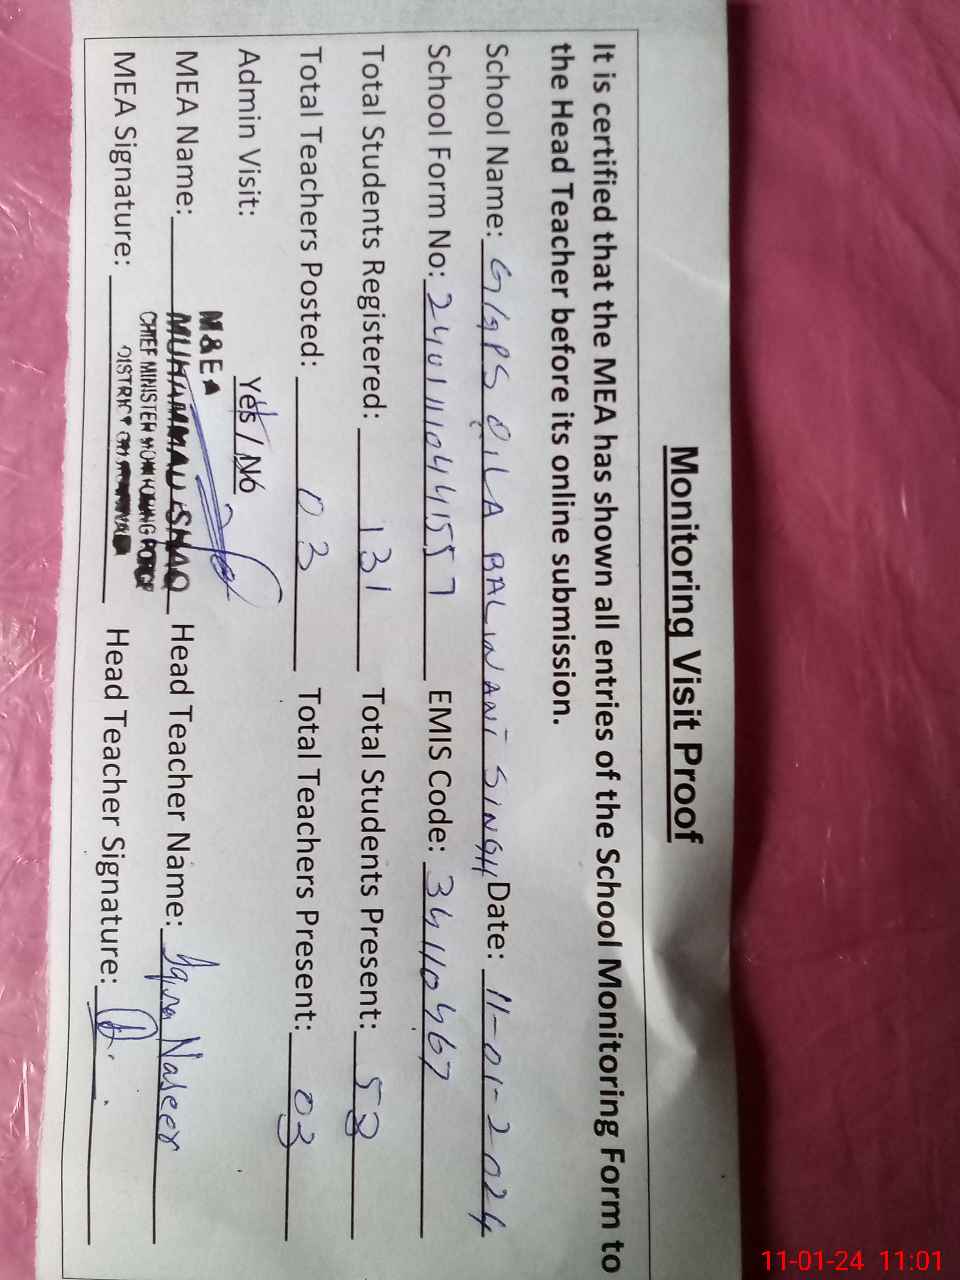 Monitoring Visit Proof
It is certified that the MEA has shown all entries of the School Monitoring Form to
the Head Teacher before its online submission.
School Name: GGPS QILA BALWANT SINGH Date: 11-01-2024
School Form No: 2401110441557 EMIS Code: 34110467
Total Students Registered: 131 Total Students Present: 53
Total Teachers Posted: 03 Total Teachers Present: 03
Admin Visit: Yes / No
M&EA
MEA Name: MUHAMMAD ISHAQ Head Teacher Name: Iqra Naseer
CHIEF MINISTER MONITORING FORCE
MEA Signature: DISTRICT Head Teacher Signature:
11-01-24 11:01